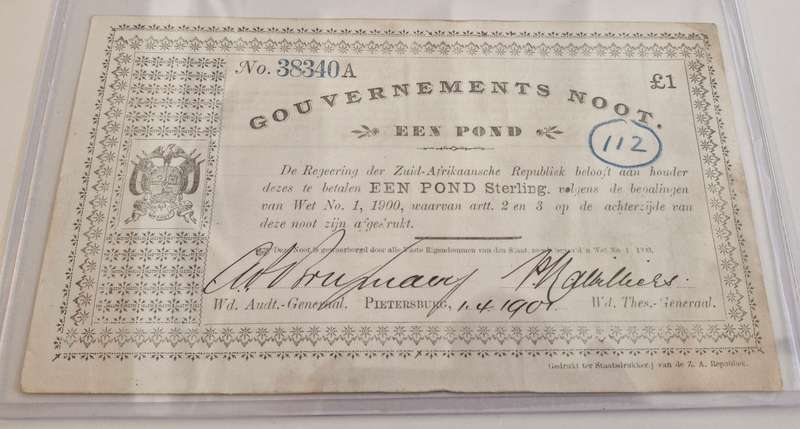 No. 38340A
£1
GOUVERNEMENTS NOOT.
EEN POND
112
De Regeering der Zuid-Afrikaansche Republiek belooft aan houder
dezes te betalen EEN POND Sterling, volgens de bepalingen
van Wet No. 1, 1900, waarvan artt. 2 en 3 op de achterzijde van
deze noot zijn afgedrukt.
Deze Noot is gewaarborgd door alle Vaste Eigendommen van den Staat,
Wd. Audt.-Generaal. PIETERSBURG, 1.4.1901 Wd. Thes.-Generaal.
Gedrukt ter Staatsdrukkerij van de Z. A. Republiek.